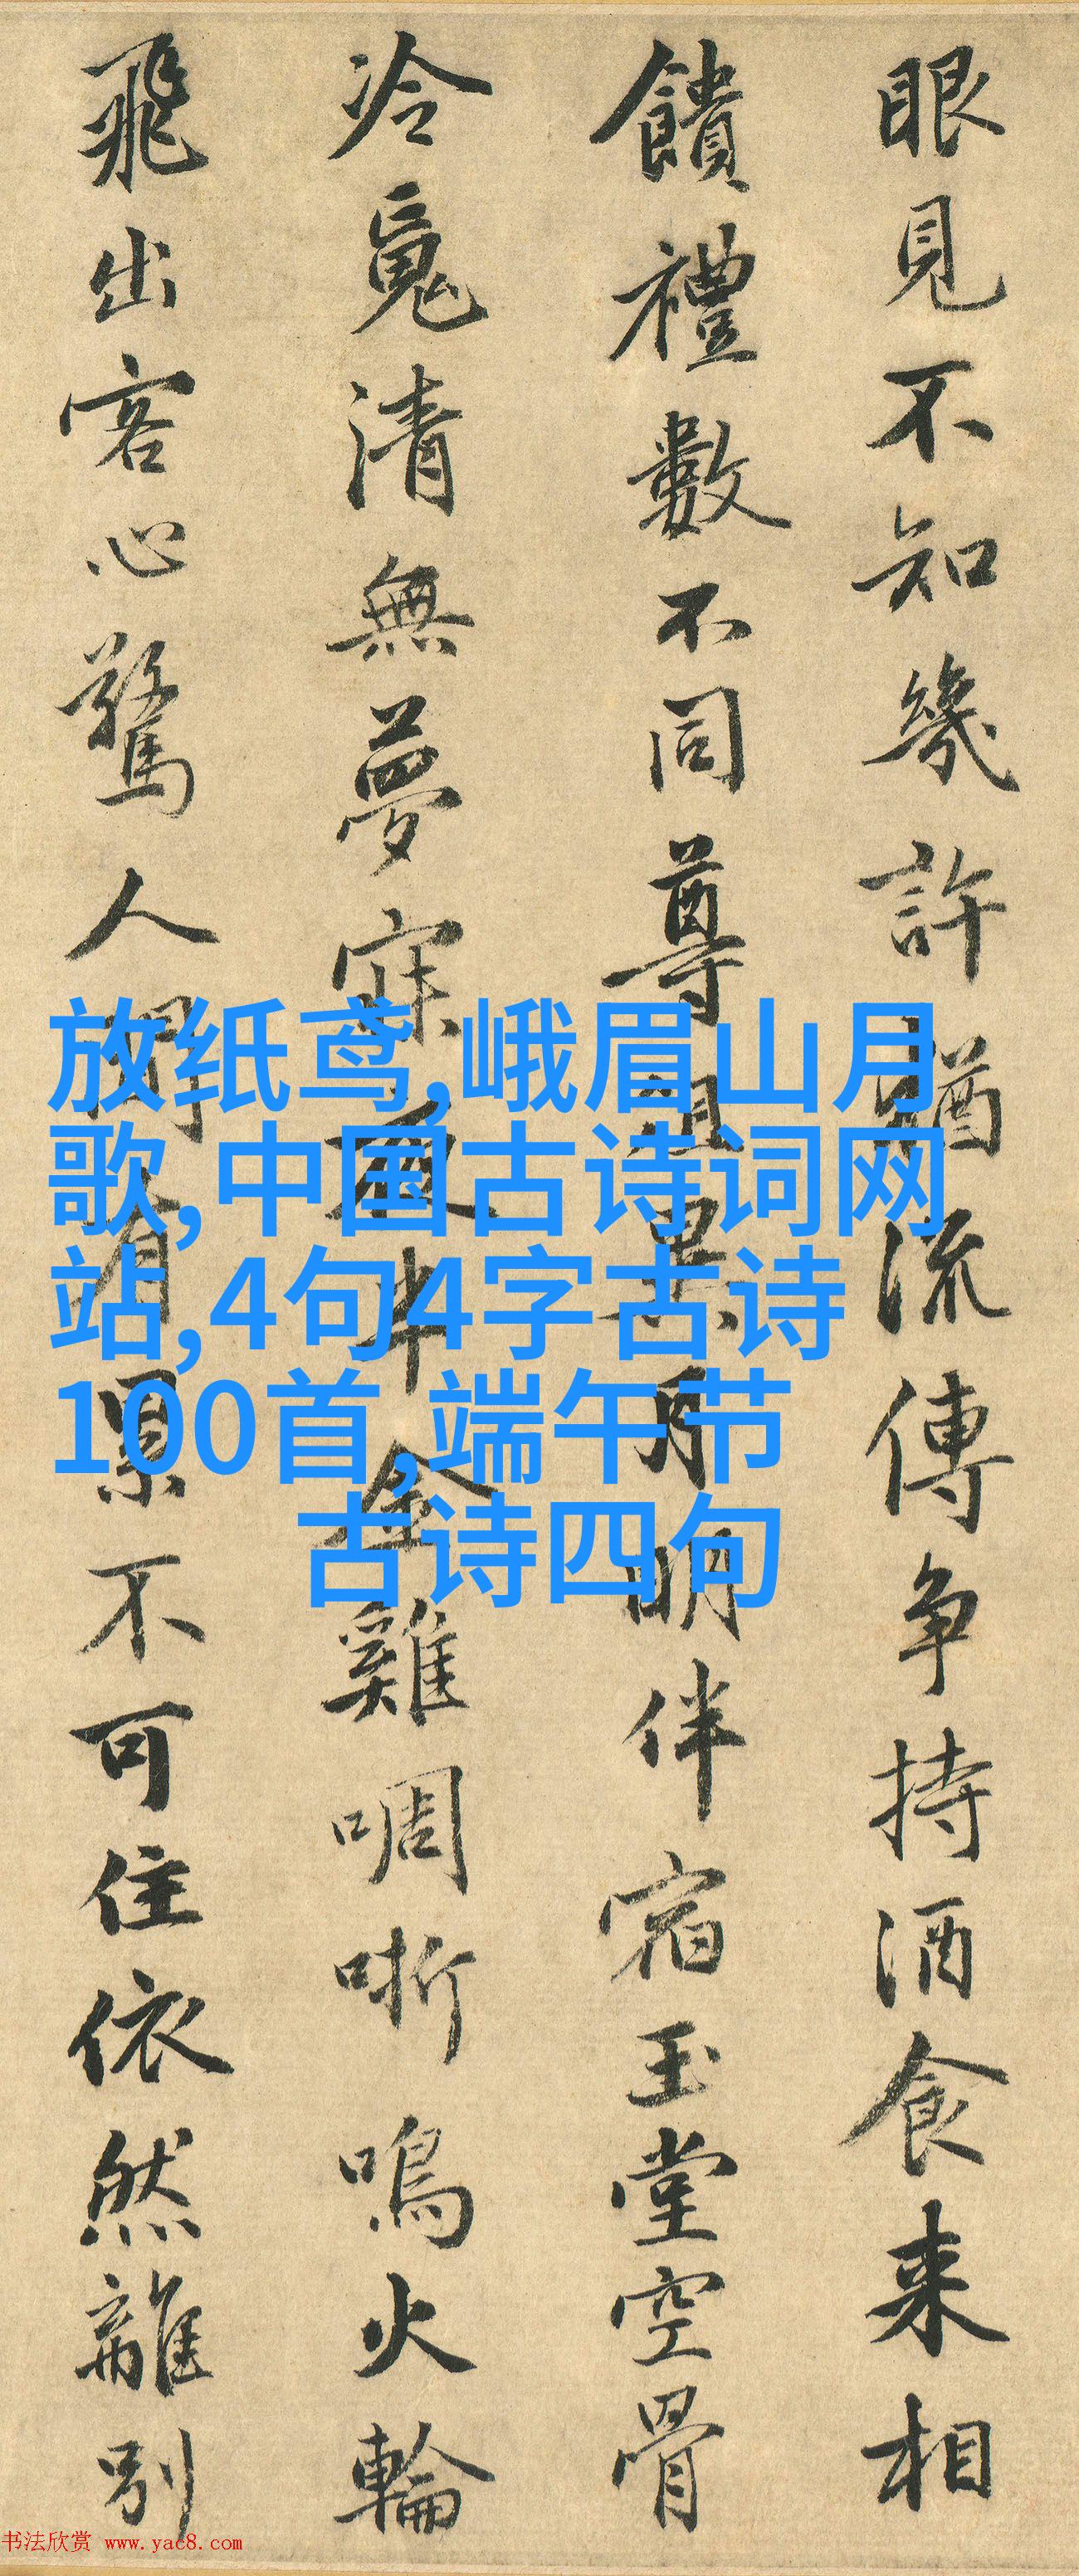 眼見不知幾許猶流傳争持酒食来相
饋禮數不同尊俎異月明伴宿玉堂空骨
冷魂清無夢寐夜半金雞啁哳鳴火輪
飛出客心驚人間有累不可住依然離別
放纸鸢,峨眉山月
歌,中国古诗词网
站,4句4字古诗
100首,端午节
古诗四句
书法欣赏 www.yac8.com